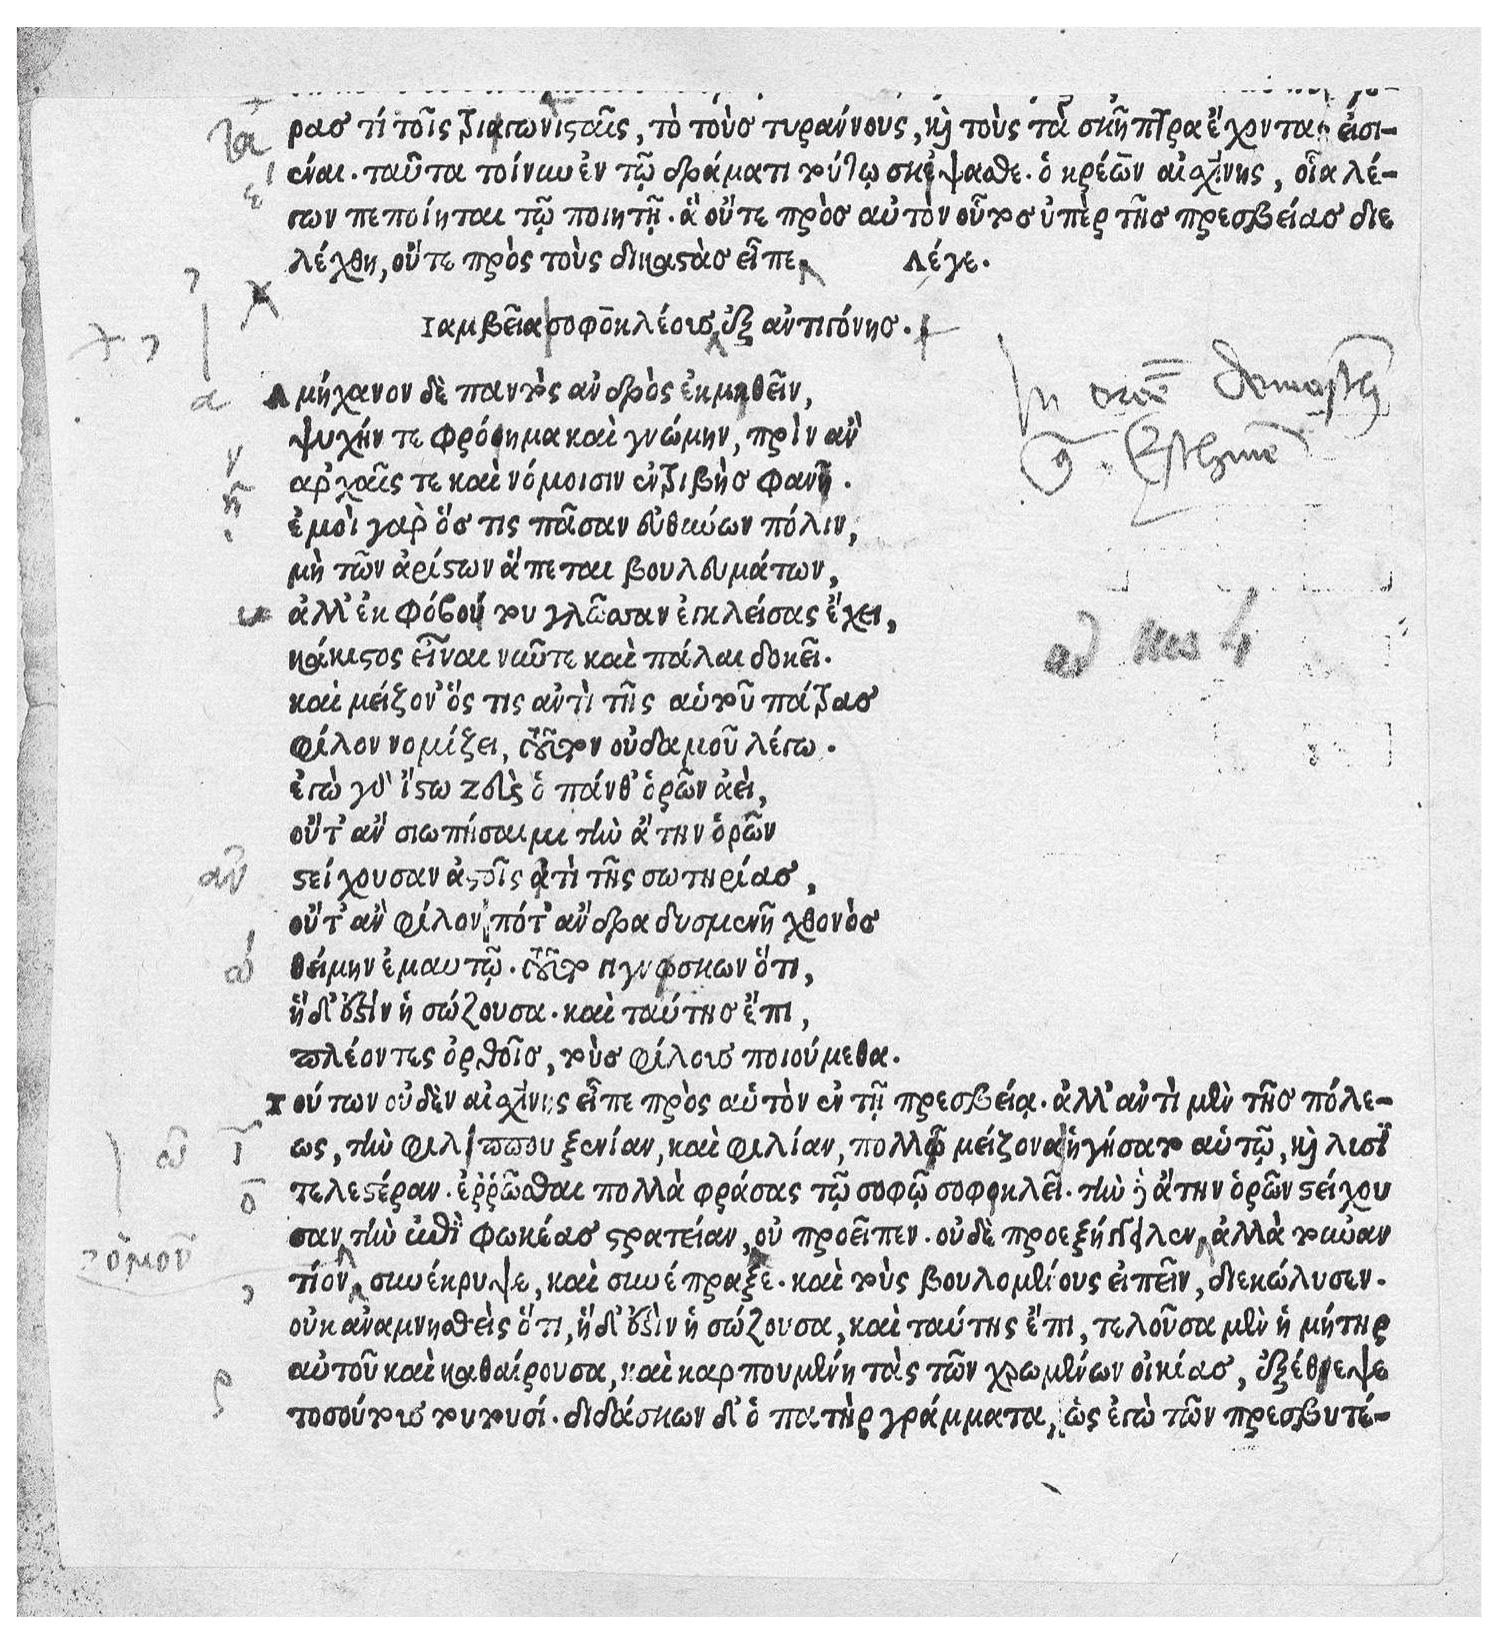 ρας τί τοῖς τριταγωνισταῖς, τὸ τοὺς τυράννους, καὶ τοὺς τὰ σκῆπτρα ἔχοντας εἰσι-
έναι. ταῦτα τοίνυν ἐν τῷ δράματι τούτῳ σκέψασθε. ὁ κρέων αἰσχίνης, οἷα λέ-
γων πεποίηται τῷ ποιητῇ. ἃ οὔτε πρὸς αὐτὸν οὗτος ὑπὲρ τῆς πρεσβείας διε
λέχθη, οὔτε πρὸς τοὺς δικαστὰς εἶπε. Λέγε.
Ιαμβεῖα σοφοκλέους ἐξ ἀντιγόνης.
Αμήχανον δὲ παντὸς ἀνδρὸς ἐκμαθεῖν,
ψυχήν τε φρόνημα καὶ γνώμην, πρὶν ἂν
ἀρχαῖς τε καὶ νόμοισιν ἐντριβὴς φανῇ.
ἐμοὶ γὰρ ὅς τις πᾶσαν εὐθύνων πόλιν,
μὴ τῶν ἀρίστων ἅπεται βουλευμάτων,
ἀλλ' ἐκ φόβου του γλῶσσαν ἐγκλείσας ἔχει,
κάκιστος εἶναι νῦν τε καὶ πάλαι δοκεῖ.
καὶ μείζον' ὅς τις ἀντὶ τῆς αὑτοῦ πάτρας
φίλον νομίζει, τοῦτον οὐδαμοῦ λέγω.
ἐγὼ γὰρ ἴστω ζεὺς ὁ πάνθ' ὁρῶν ἀεὶ,
οὔτ' ἂν σιωπήσαιμι τὴν ἄτην ὁρῶν
στείχουσαν ἀστοῖς ἀτὶ τῆς σωτηρίας,
οὔτ' ἂν φίλον πότ' ἄνδρα δυσμενῆ χθονὸς
θείμην ἐμαυτῷ. τοῦτο γιγνώσκων ὅτι,
ἥδ' ἐστὶν ἡ σώζουσα. καὶ ταύτης ἔπι,
πλέοντες ὀρθῆς, τοὺς φίλους ποιούμεθα.
Τούτων οὐδὲν αἰσχίνης εἶπε πρὸς αὑτὸν ἐν τῇ πρεσβείᾳ. ἀλλ' ἀντὶ μὲν τῆς πόλε-
ως, τὴν φιλίππου ξενίαν, καὶ φιλίαν, πολλῷ μείζονα ἡγήσατο αὑτῷ, καὶ λυσι
τελεστέραν. ἐῤῥῶσθαι πολλὰ φράσας τῷ σοφῷ σοφοκλεῖ. τὴν δὲ ἄτην ὁρῶν στείχου
σαν τὴν ἐπὶ φωκέας στρατείαν, οὐ προεῖπεν. οὐδὲ προεξήγγειλεν, ἀλλὰ τοὐναν
τίον, συνέκρυψε, καὶ συνέπραξε. καὶ τοὺς βουλομένους εἰπεῖν, διεκώλυσεν.
οὐκ ἀναμνησθεὶς ὅτι, ἥδ' ἐστὶν ἡ σώζουσα, καὶ ταύτης ἔπι, τελοῦσα μὲν ἡ μήτηρ
αὐτοῦ καὶ καθαίρουσα, καὶ καρπουμένη τὰς τῶν χρωμένων οἰκίας, ἐξέθρεψε
τοσούτους τουτουσί. διδάσκων δ' ὁ πατὴρ γράμματα, ὡς ἐγὼ τῶν πρεσβυτέ-